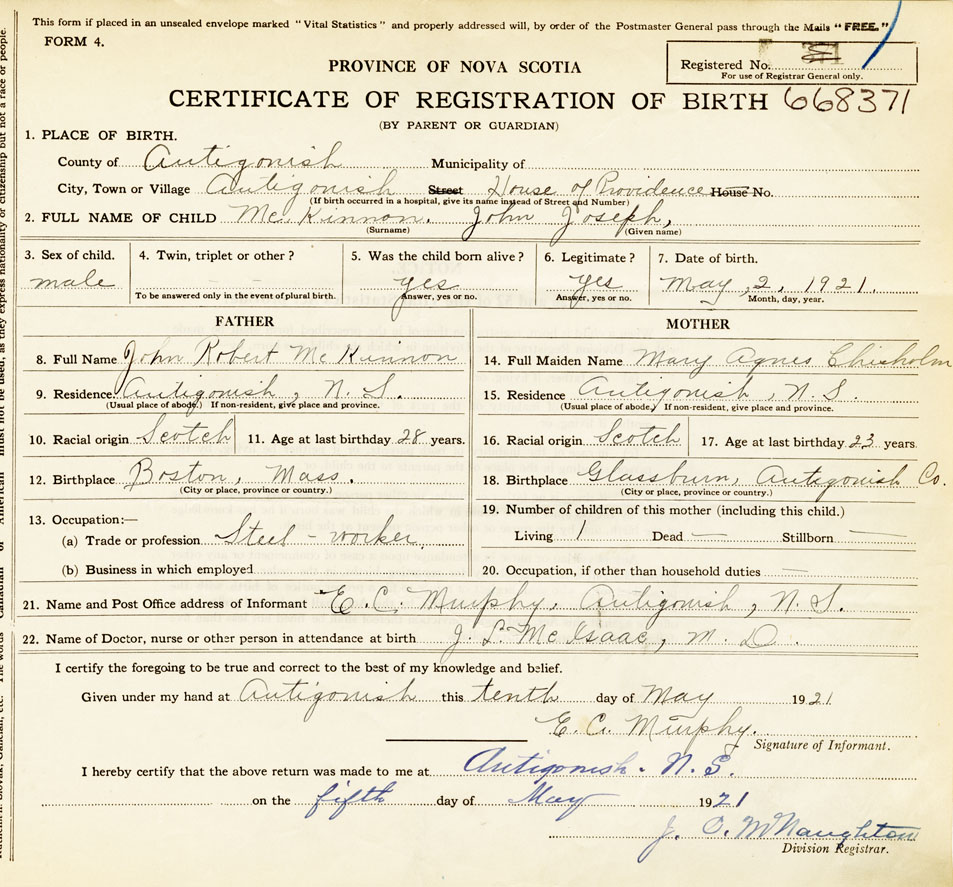 This form if placed in an unsealed envelope marked "Vital Statistics" and properly addressed will, by order of the Postmaster General pass through the Mails "FREE."
FORM 4.
Registered No.
For use of Registrar General only.
PROVINCE OF NOVA SCOTIA
CERTIFICATE OF REGISTRATION OF BIRTH 668371
(BY PARENT OR GUARDIAN)
1. PLACE OF BIRTH.
County of Antigonish Municipality of
City, Town or Village Antigonish Street House of Providence House No.
(If birth occurred in a hospital, give its name instead of Street and Number)
2. FULL NAME OF CHILD McKinnon. John Joseph,
(Surname) (Given name)
3. Sex of child. 4. Twin, triplet or other ? 5. Was the child born alive ? 6. Legitimate ? 7. Date of birth.
male yes yes May, 2, 1921.
To be answered only in the event of plural birth. Answer, yes or no. Answer, yes or no. Month, day, year.
FATHER
8. Full Name John Robert McKinnon
9. Residence Antigonish, N. S.
(Usual place of abode.) If non-resident, give place and province.
10. Racial origin Scotch 11. Age at last birthday 28 years.
12. Birthplace Boston, Mass.
(City or place, province or country.)
13. Occupation:—
(a) Trade or profession Steel-worker
(b) Business in which employed
MOTHER
14. Full Maiden Name Mary Agnes Chisholm
15. Residence Antigonish, N. S.
(Usual place of abode,) If non-resident, give place and province.
16. Racial origin Scotch 17. Age at last birthday 23 years.
18. Birthplace Glassburn, Antigonish Co.
(City or place, province or country.)
19. Number of children of this mother (including this child.)
Living 1 Dead — Stillborn —
20. Occupation, if other than household duties —
21. Name and Post Office address of Informant E. C. Murphy, Antigonish, N. S.
22. Name of Doctor, nurse or other person in attendance at birth J. L. McIsaac, M. D.
I certify the foregoing to be true and correct to the best of my knowledge and belief.
Given under my hand at Antigonish this tenth day of May 1921
E. C. Murphy.
Signature of Informant.
I hereby certify that the above return was made to me at Antigonish. N. S.
on the fifth day of May 1921
J. C. McNaughton
Division Registrar.
must not be used, as they express nationality or citizenship but not a race or people.